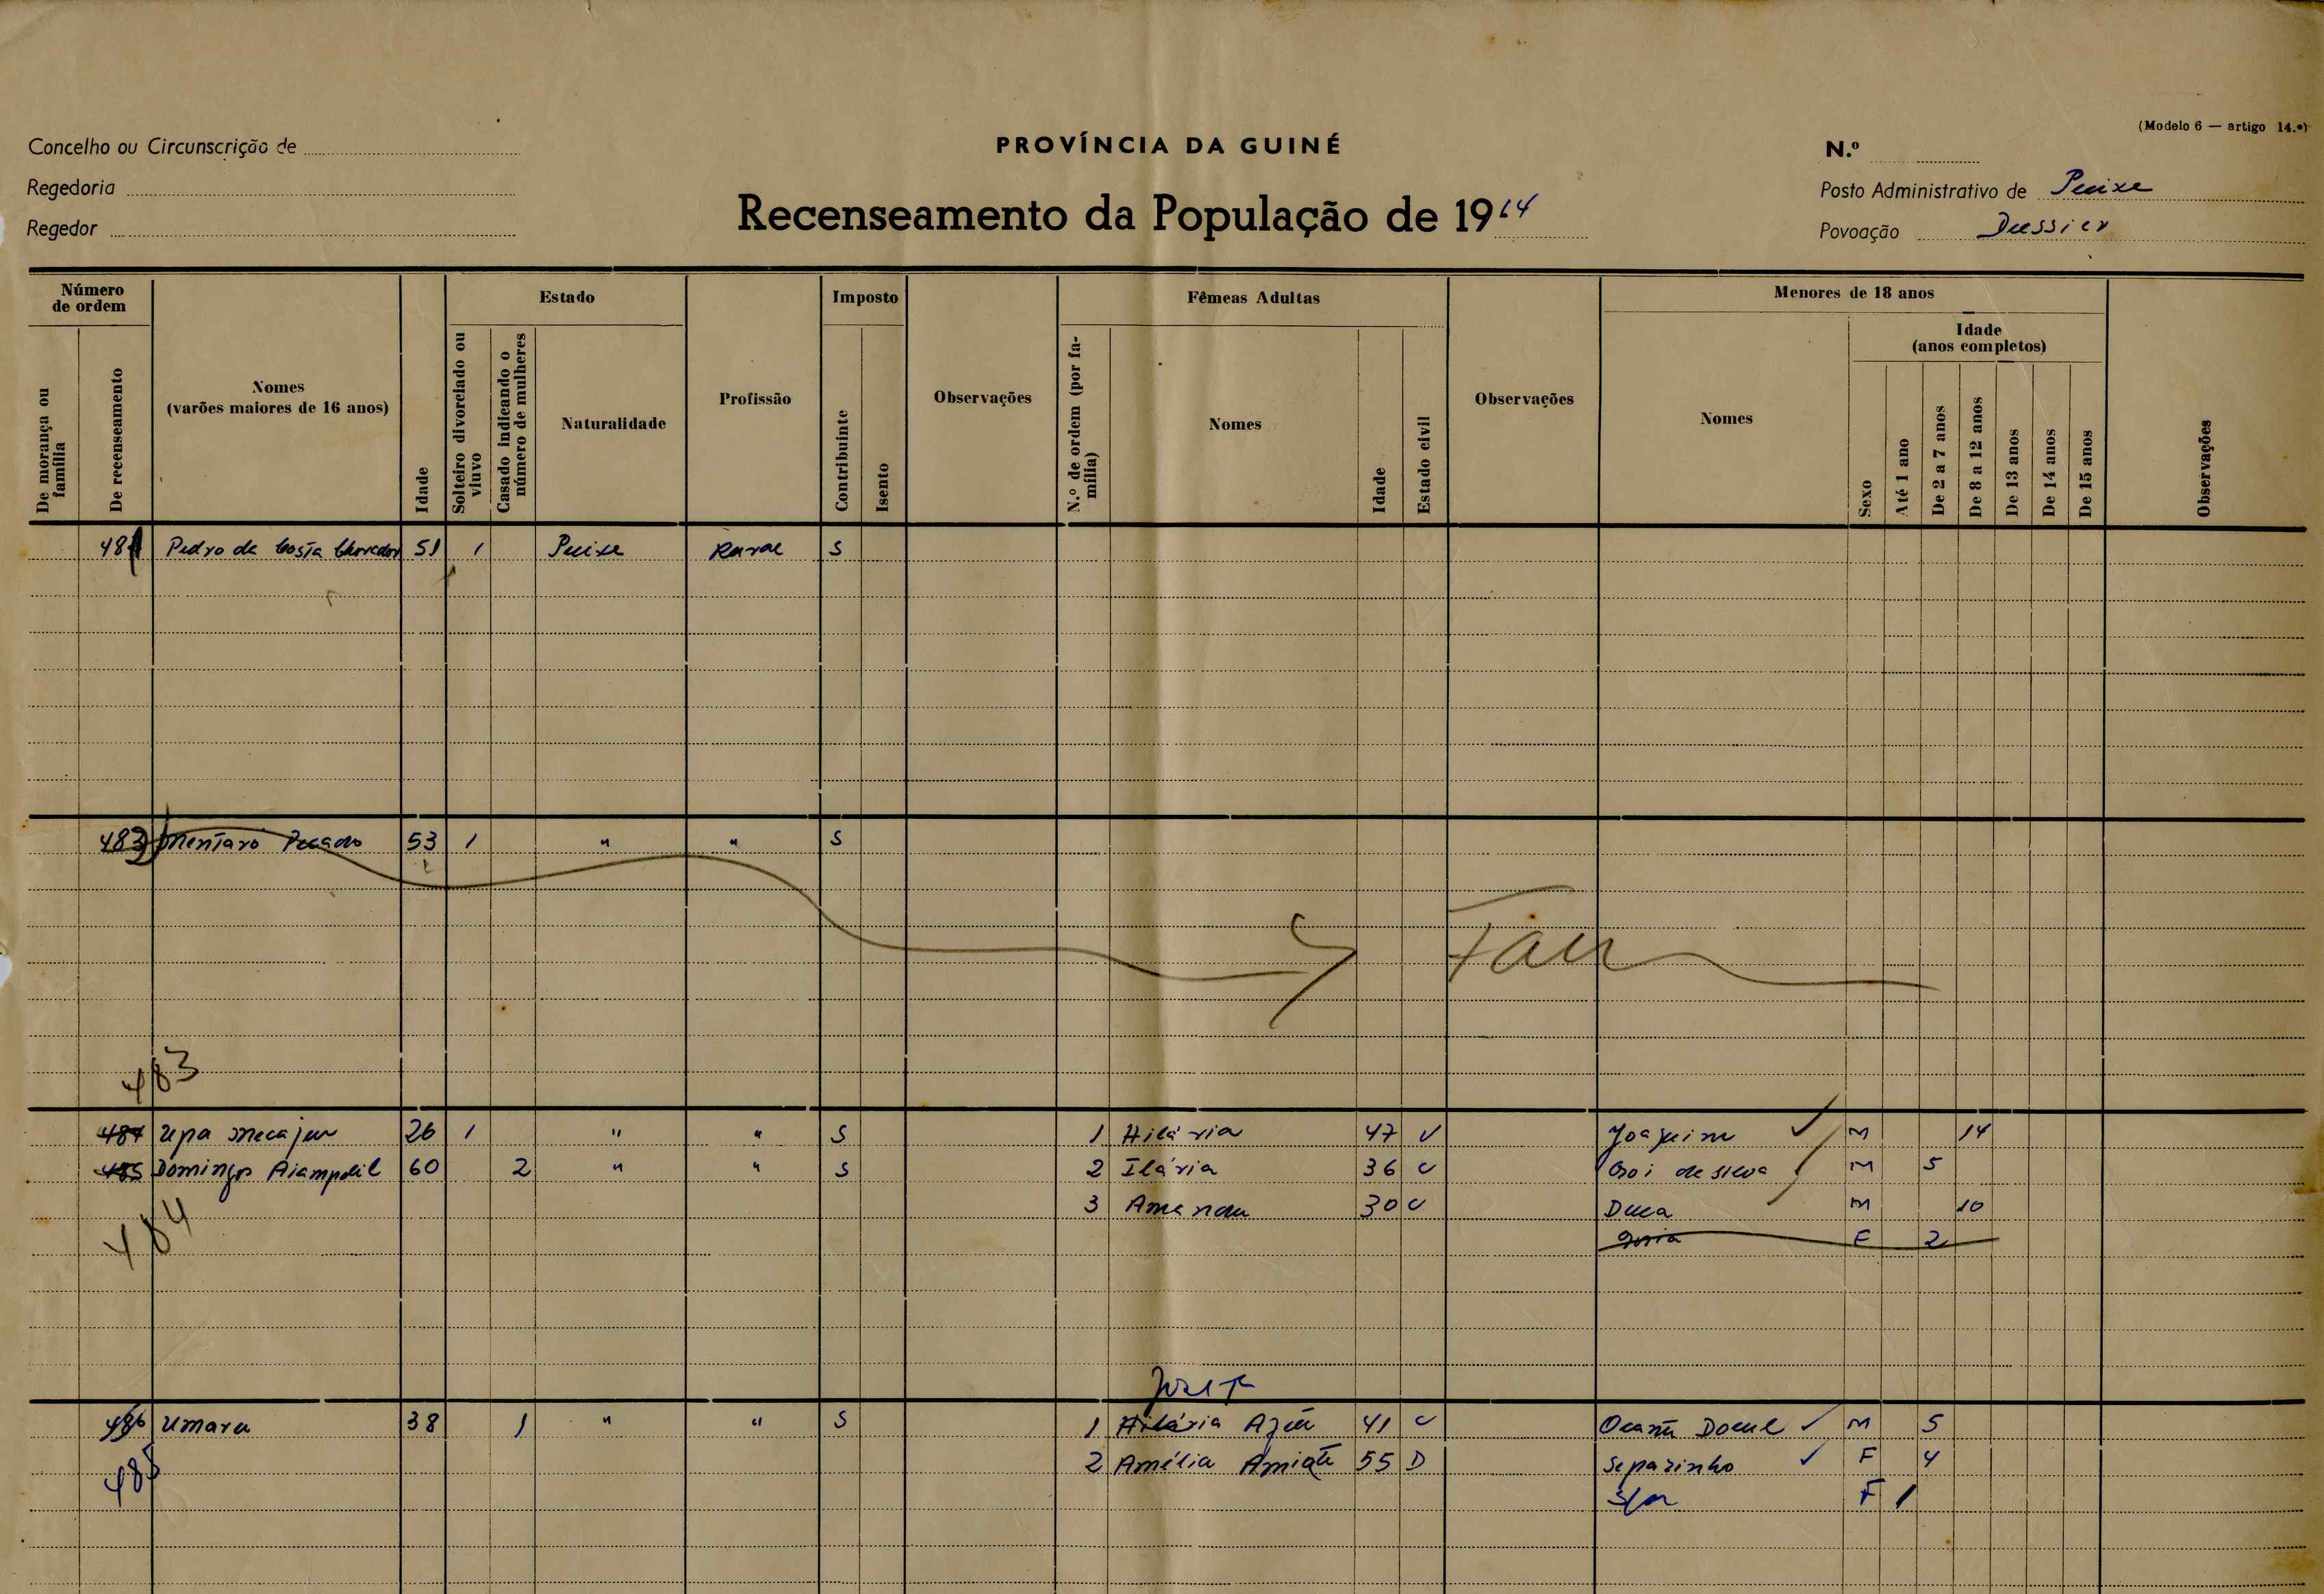 (Modelo 6 — artigo 14.º)
Concelho ou Circunscrição de
PROVÍNCIA DA GUINÉ
N.º
Regedoria
Recenseamento da População de 1964
Posto Administrativo de Peixe
Regedor
Povoação
Número de ordem
De morança ou família
De recenseamento
Nomes
(varões maiores de 16 anos)
Idade
Estado
Solteiro divorciado ou viuvo
Casado indicando o número de mulheres
Naturalidade
Profissão
Imposto
Contribuinte
Isento
Observações
Fêmeas Adultas
N.º de ordem (por família)
Nomes
Idade
Estado civil
Observações
Menores de 18 anos
Nomes
Sexo
Idade
(anos completos)
Até 1 ano
De 2 a 7 anos
De 8 a 12 anos
De 13 anos
De 14 anos
De 15 anos
Observações
481 Pedro da Costa 51 1 Peixe Rural S
53 1 " " S
483
484 26 1 " " S 1 Hilária 47 V Joaquim M 14
485 Domingos 60 2 " " S 2 Ilária 36 C M 5
3 30 C Duca M 10
F 2
484
486 Umaru 38 1 " " S 1 Hilária 41 C M 5
2 Amélia 55 D Separinho F 4
F 1
485